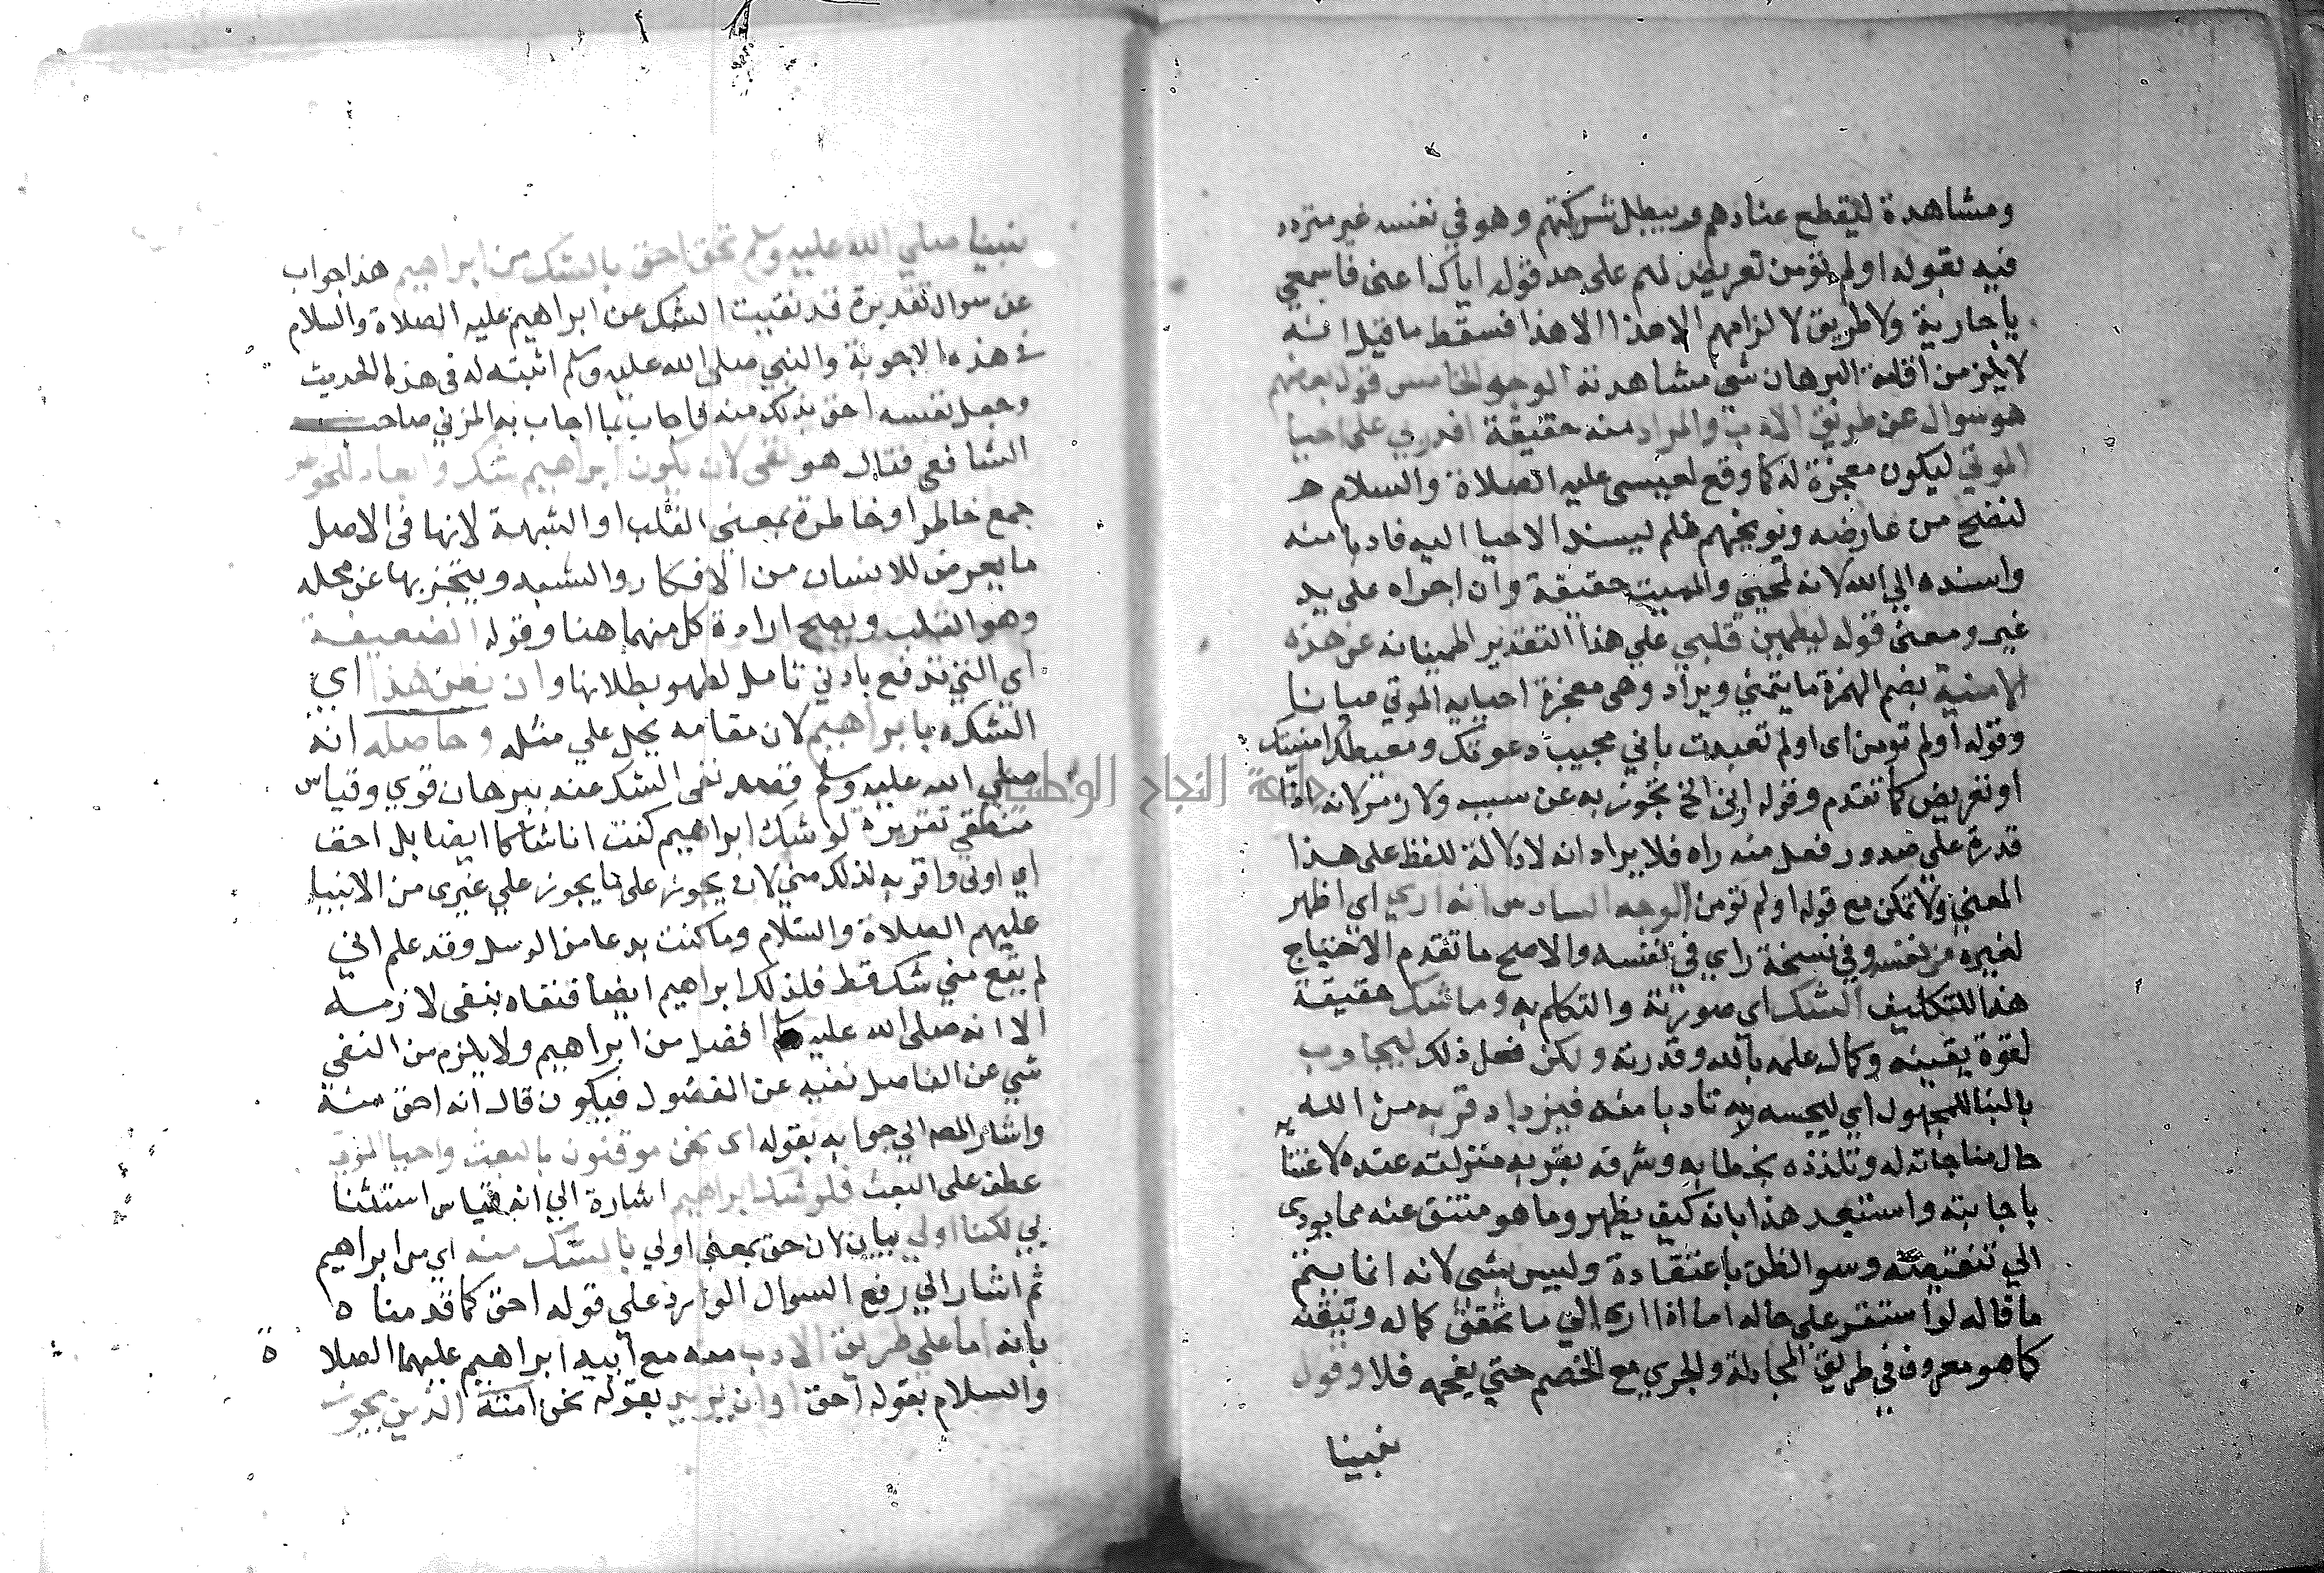 ومشاهدة ليقطع عنادهم ويبطل شركتهم وهو في نفسه غير متردد
فيه بقوله اولم تؤمن تعريض لهم على حد قوله اياك اعنى فاسمعي
ياجارية ولا طريق لالزامهم الا هذا الا هذا فسقط ما قيل انه
لا يلزم من اقامة البرهان شي مشاهدته الوجه الخامس قول بعضهم
هو سوال عن طريق الادب والمراد منه حقيقة اقدرني على احيا
الموتي ليكون معجزة له كما وقع لعيسى عليه الصلاة والسلام
لتفضح من عارضه وتوبيخهم فلم يسند الاحيا اليه فادبا منه
واسنده الي الله لانه المحيي والمميت حقيقة وان اجراه على يد
غيره ومعنى قوله ليطمين قلبي علي هذا التقدير اطمينانه عن هذه
الامنية بضم الهمزة ما يتمنى ويراد وهى معجزة احيايه الموتي عيانا
وقوله اولم تومن اى اولم تعبدت باني مجيب دعوتك ومعيطك امنيتك
او تعريض كما تقدم وقوله ارنى الخ تجوز به عن سبب ولازمر لانه اذا
قدرة علي صدور فعل منه راه فلا يراد انه لا دلالة للفظ على هذا
المعني ولا تمكن مع قوله اولم تومن الوجه السادس انه اري اي اظهر
لغيره من نفسه وفي نسخة راي في نفسه والاصح ما تقدم الاحتياج
هذا للتكليف الشك اي صورته والتكلم به وما شك حقيقة
لقوة يقينه وكمال علمه بالله وقدرته ولكن فعل ذلك ليجاوب
بالبنا للمجهول اي ليجيبه ربه تادبا منه فيزداد قربه من الله
حال مناجاته له وتلذذه بخطابه وشرفه بقربه منزلته عنده لاعتنائه
باجابته واستبعد هذا بانه كيف يظهر وما هو منتق عنه مما يودى
الي تنقيصه وسو الظن باعتقادة وليس بشى لانه انما يتم
ما قاله لو استقر على حاله اما اذا ادى الي ما تحقق كماله وتيقنه
كما هو معروف في طريق المجادلة والجري مع الخصم حتي يفحمه فلا وقول
نبينا
نبينا صلي الله عليه وسلم نحن احق بالشك من ابراهيم هذا جواب
عن سوال تقديرة قد نفيت الشك عن ابراهيم عليه الصلاة والسلام
في هذه الاجوبة والنبي صلى الله عليه وسلم اثبته له فى هذا الحديث
وجعل نفسه احق بذلك منه فاجاب بما اجاب به المزني صاحب
الشافعى فقال هو نفى لان يكون ابراهيم شك وابعاد للخواطر
جمع خاطر او خاطرة بمعنى القلب او الشبهة لانها فى الاصل
ما يعرض للانسان من الافكار والشبه ويتجوز بها عن محله
وهو القلب ويصح ارادة كل منهما هنا وقوله الضعيفة
اي التي تدفع بادني تامل لظهور بطلانها وان نظن هذا اي
الشك بابراهيم لان مقامه يجل علي مثله وحاصله انه
صلي الله عليه وسلم قصد نفى الشك عنه ببرهان قوي وقياس
منطقي تقريرة لو شك ابراهيم كنت انا شاكا ايضا بل احق
اي اولى واقرب لذلك مني لان يجوز على ما يجوز علي غيرى من الانبيا
عليهم الصلاة والسلام وما كنت بدعا من الرسل وقد علم اني
لم يقع مني شك قط فلذلك ابراهيم ايضا فنفاه بنفى لازمه
الا انه صلى الله عليه وسلم افضل من ابراهيم ولا يلزم من النفي
شي عن الفاضل نفيه عن المفضول فيكون قال انه احق منه
واشار المصـ الي جوابه بقوله اى نحن موقنون بالبعث واحيا الموتى
عطف على البعث فلو شك ابراهيم اشارة الي انه قياس استثنا
يي لكنا اولى بيان لان حق بمعني اولي بالشك منه اي من ابراهيم
ثم اشار الي رفع السوال الوارد علي قوله احق كما قدمناه
بانه اما علي طريق الادب منه مع ابيه ابراهيم عليهما الصلاة
والسلام بقوله احق او ان يريد بقوله نحن امته الذين يجوز
جامعة النجاح الوطنية